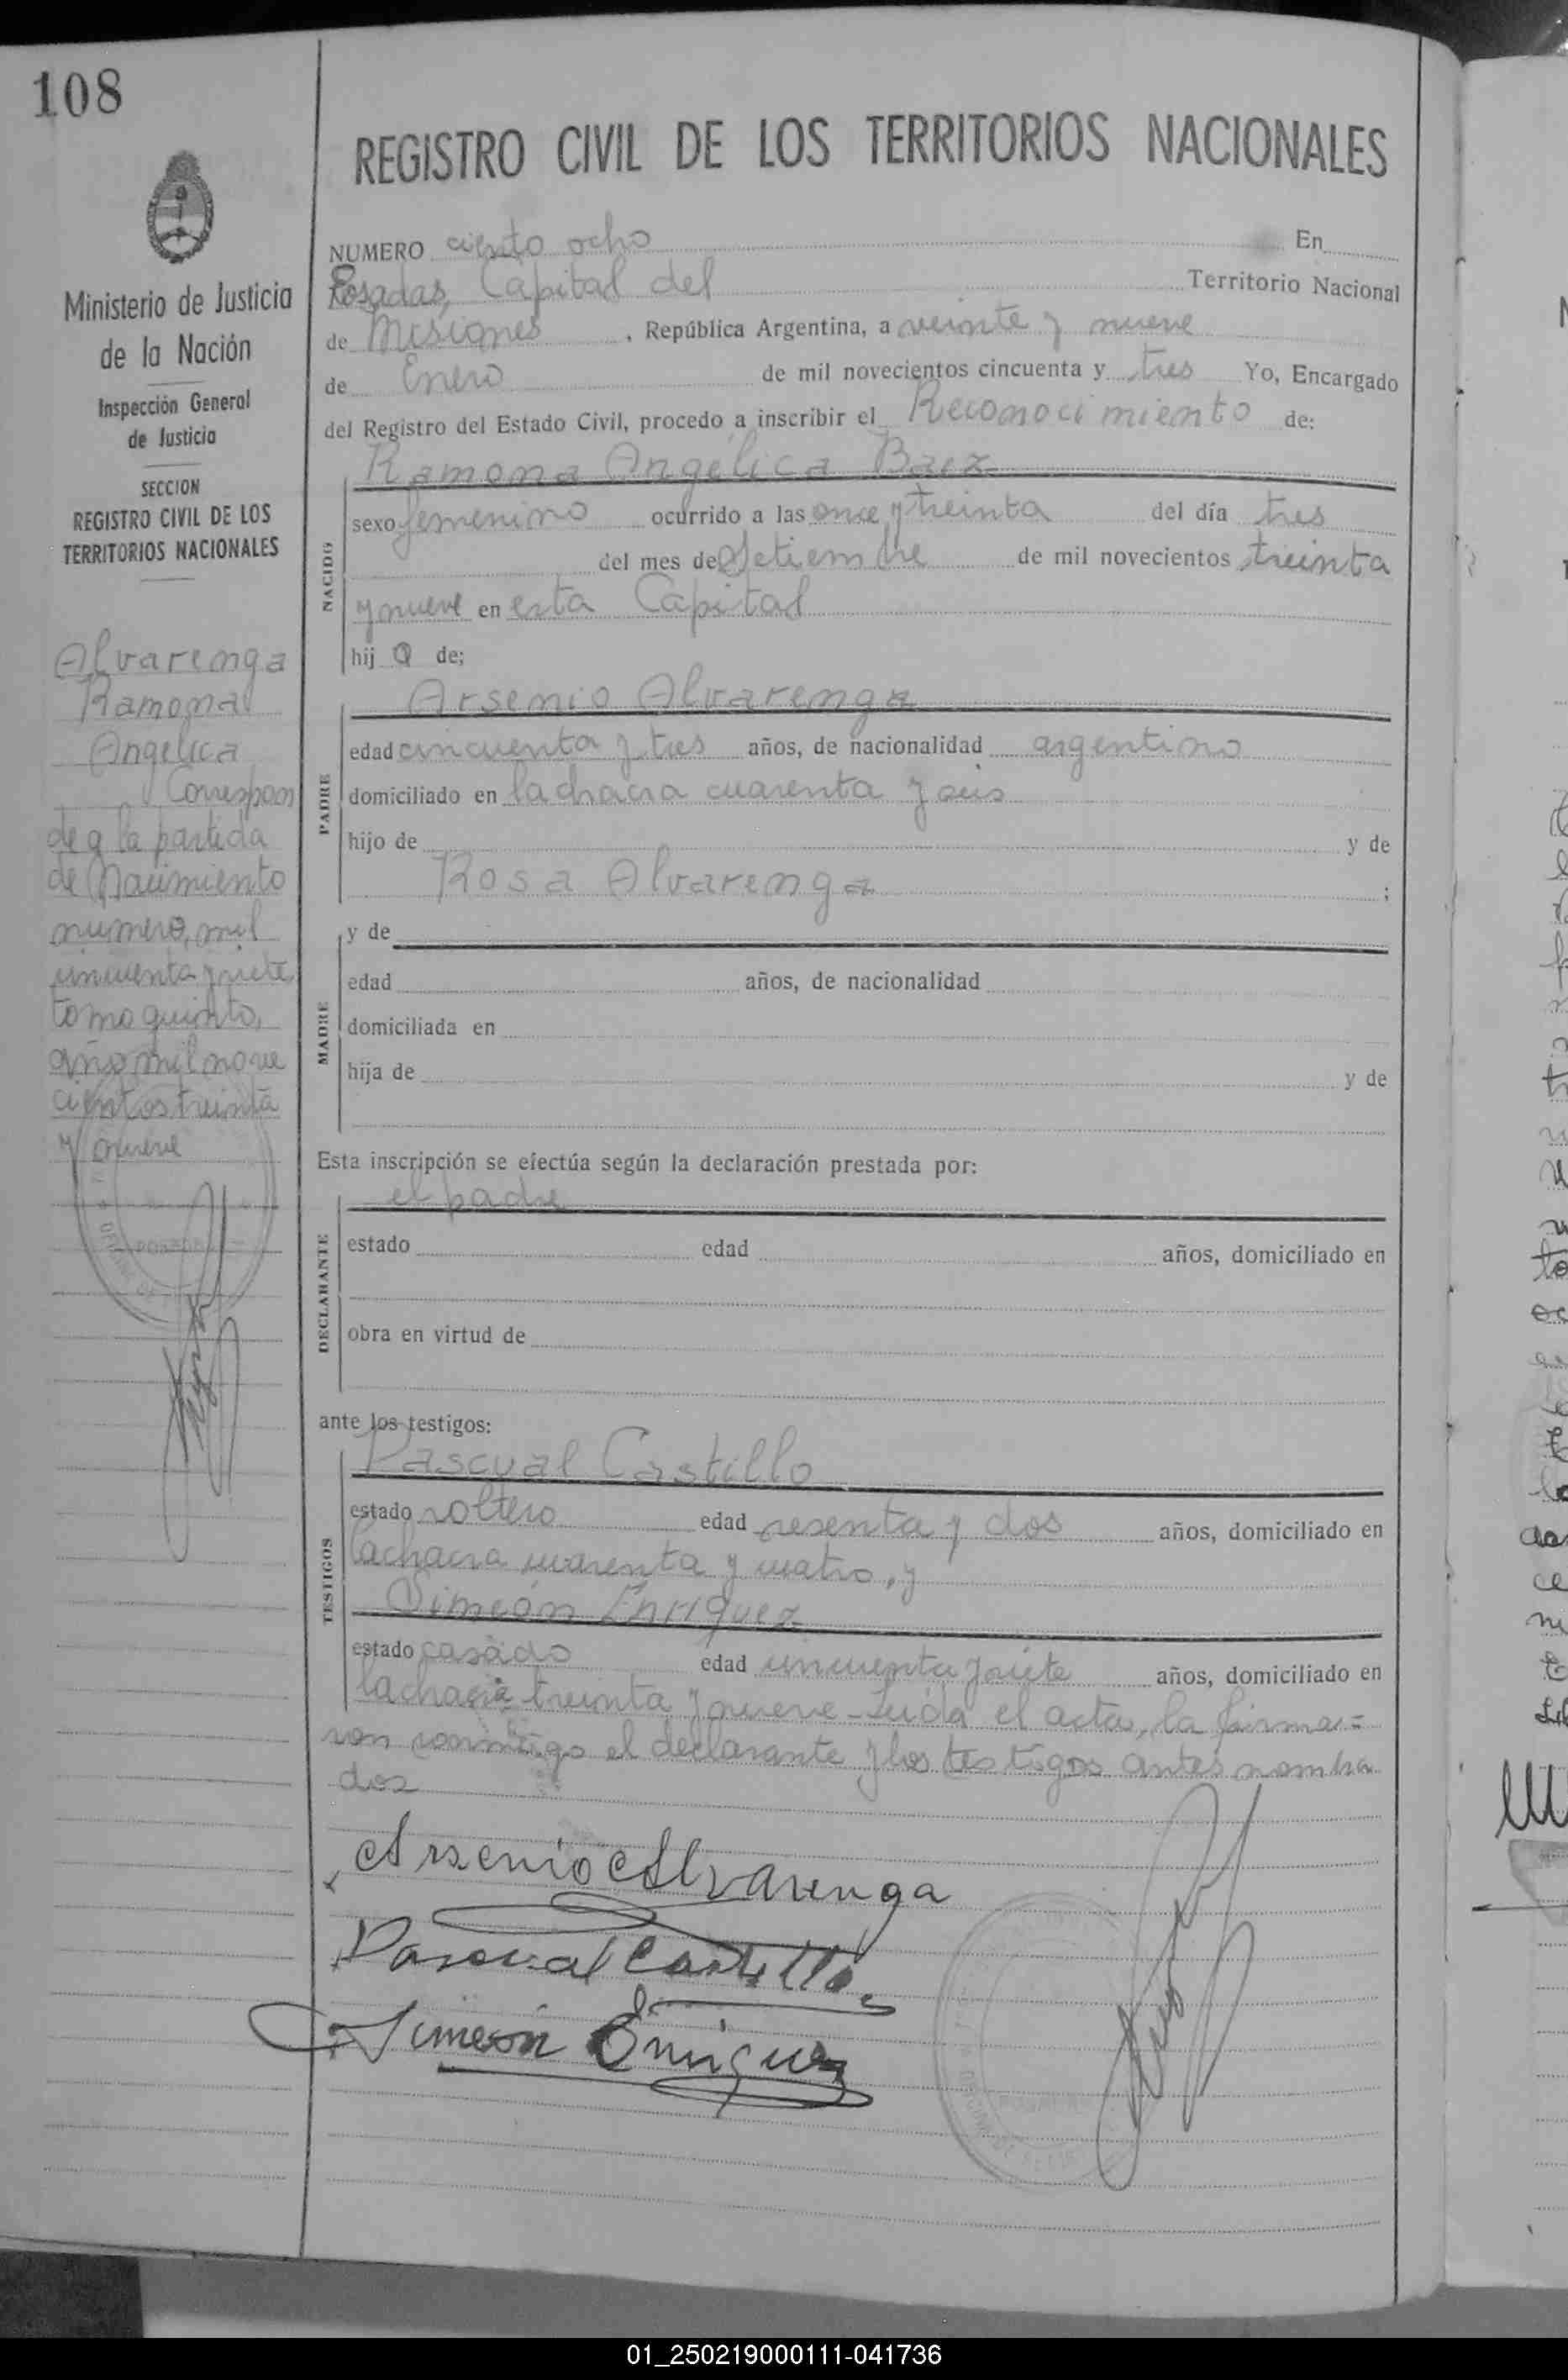 108
REGISTRO CIVIL DE LOS TERRITORIOS NACIONALES
Ministerio de Justicia
de la Nación
Inspección General
de Justicia
SECCION
REGISTRO CIVIL DE LOS
TERRITORIOS NACIONALES
Alvarenga
Ramona
Angélica
Correspon
de a la partida
de Nacimiento
numero, mil
cincuenta y siete
tomo quinto,
año mil nove
cientos treinta
y nueve
NUMERO ciento ocho En
Posadas, Capital del Territorio Nacional
de Misiones, República Argentina, a veinte y nueve
de Enero de mil novecientos cincuenta y tres Yo, Encargado
del Registro del Estado Civil, procedo a inscribir el Reconocimiento de:
Ramona Angélica Baez
NACIDO
sexo femenino ocurrido a las once y treinta del día tres
del mes de Setiembre de mil novecientos treinta
y nueve en esta Capital
hij a de;
Arsenio Alvarenga
PADRE
edad cincuenta y tres años, de nacionalidad argentino
domiciliado en la chacra cuarenta y seis
hijo de y de
Rosa Alvarenga ;
MADRE
y de
edad años, de nacionalidad
domiciliada en
hija de y de
Esta inscripción se efectúa según la declaración prestada por:
el padre
DECLARANTE
estado edad años, domiciliado en
obra en virtud de
ante los testigos:
Pascual Castillo
TESTIGOS
estado soltero edad sesenta y dos años, domiciliado en
la chacra cuarenta y cuatro, y
Simeón Enriquez
estado casado edad cincuenta y siete años, domiciliado en
la chacra treinta y nueve - Leída el acta, la firma=
ron conmigo el declarante y los testigos antes nombra
dos
Arsenio Alvarenga
Pascual Castillo
Simeón Enriquez
01_250219000111-041736